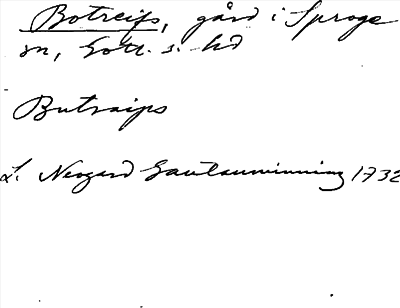 Botreifs, gård i Sproge
sn, Gotl. s. hd
Butraips
L. Neogard Gautauminning 1732